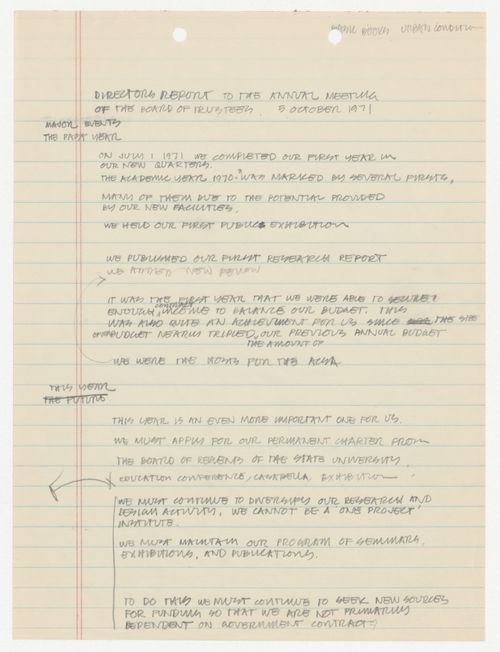 BASIC BOOKS URBAN CONDITION
DIRECTORS REPORT TO THE ANNUAL MEETING
OF THE BOARD OF TRUSTEES. 5 OCTOBER 1971
MAJOR EVENTS
THE PAST YEAR
ON JULY 1 1971 WE COMPLETED OUR FIRST YEAR IN
OUR NEW QUARTERS.
THE ACADEMIC YEAR 1970-71 WAS MARKED BY SEVERAL FIRSTS,
MANY OF THEM DUE TO THE POTENTIAL PROVIDED
BY OUR NEW FACILITIES.
WE HELD OUR FIRST PUBLIC EXHIBITION
WE PUBLISHED OUR FIRST RESEARCH REPORT
WE ADDED NEW
IT WAS THE FIRST YEAR THAT WE WERE ABLE TO SECURE
ENOUGH CONTRACT INCOME TO BALANCE OUR BUDGET. THIS
WAS ALSO QUITE AN ACHIEVEMENT FOR US SINCE THE SIZE
OF OUR BUDGET NEARLY TRIPLED THE AMOUNT OF OUR PREVIOUS ANNUAL BUDGET
WE WERE THE HOSTS FOR THE ACSA
THIS YEAR
THE FUTURE
THIS YEAR IS AN EVEN MORE IMPORTANT ONE FOR US.
WE MUST APPLY FOR OUR PERMANENT CHARTER FROM
THE BOARD OF REGENTS OF THE STATE UNIVERSITY.
EDUCATION CONFERENCE, CASABELLA, EXHIBITION
WE MUST CONTINUE TO DIVERSIFY OUR RESEARCH AND
DESIGN ACTIVITY. WE CANNOT BE A ONE PROJECT
INSTITUTE.
WE MUST MAINTAIN OUR PROGRAM OF SEMINARS,
EXHIBITIONS, AND PUBLICATIONS.
TO DO THIS WE MUST CONTINUE TO SEEK NEW SOURCES
FOR FUNDING SO THAT WE ARE NOT PRIMARILY
DEPENDENT ON GOVERNMENT CONTRACTS